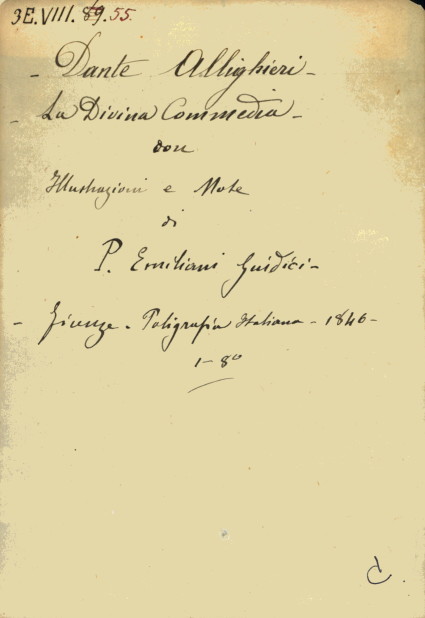 3E.VIII. 89. 55.
- Dante Allighieri -
- La Divina Commedia -
con
Illustrazioni e Note
di
P. Emiliani Guidici -
- Firenze - Poligrafia Italiana - 1846 -
1 - 8º